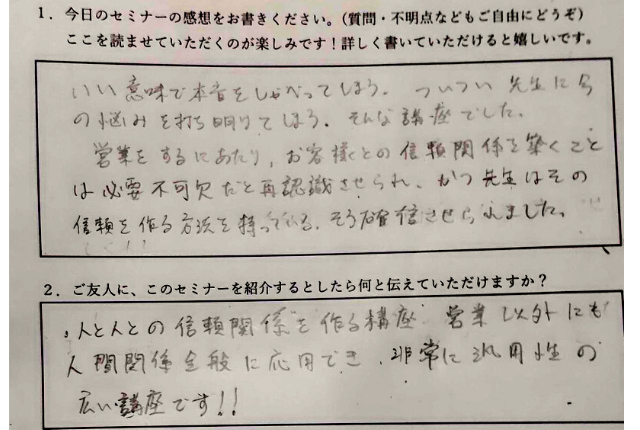 1．今日のセミナーの感想をお書きください。（質問・不明点などもご自由にどうぞ）
ここを読ませていただくのが楽しみです！詳しく書いていただけると嬉しいです。
いい意味で本音をしゃべってしまう。ついつい先生に今
の悩みを打ち明けてしまう。そんな講座でした。
営業をするにあたり，お客様との信頼関係を築くこと
は必要不可欠だと再認識させられ、かつ先生はその
信頼を作る方法を持っている。そう確信させられました。
2．ご友人に、このセミナーを紹介するとしたら何と伝えていただけますか？
人と人との信頼関係を作る講座 営業以外にも
人間関係全般に応用でき、非常に汎用性の
広い講座です！！